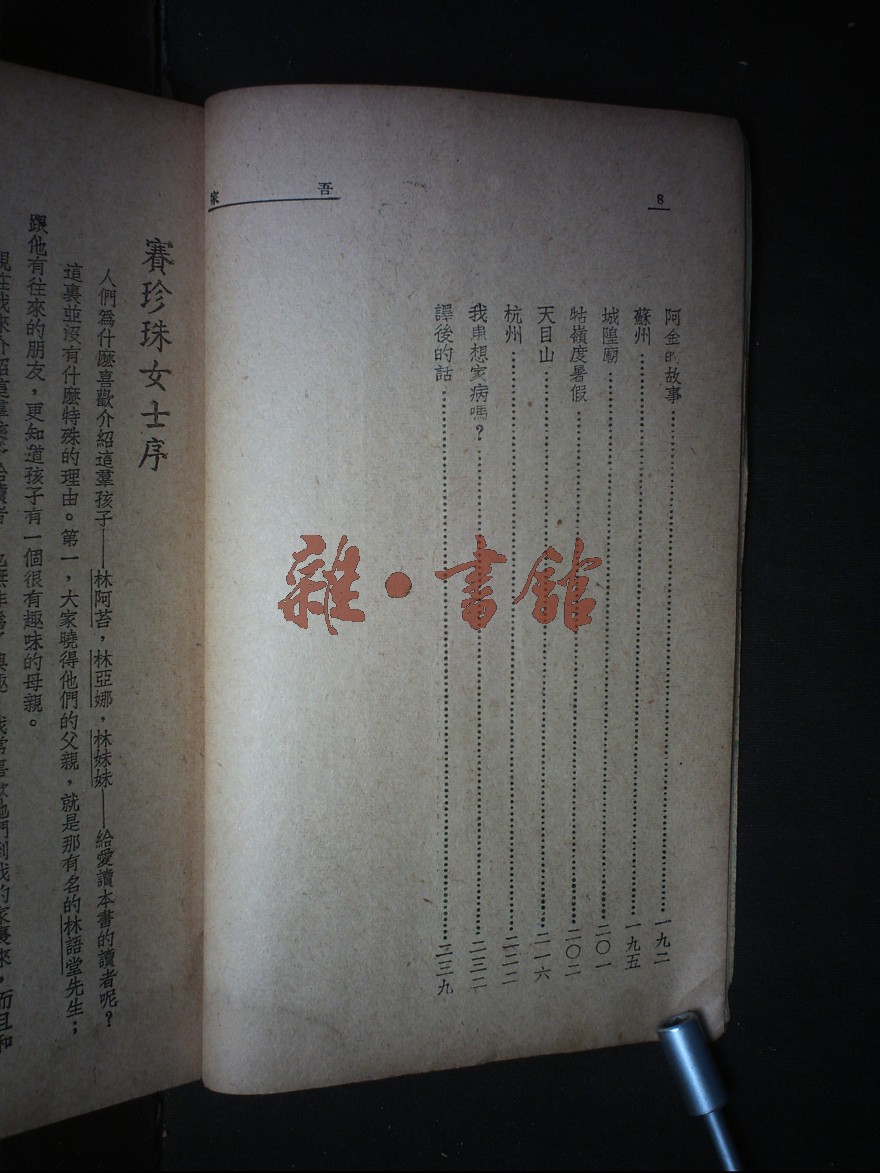 8
吾
家
阿金的故事……一九二
蘇州……一九五
城隍廟……二〇一
牯嶺度暑假……二〇二
天目山……二一六
杭州……二二二
我患想家病嗎?……二三二
譯後的話……二三九
雜·書館
賽珍珠女士序
人們為什麼喜歡介紹這羣孩子——林阿苔,林亞娜,林妹妹——給愛讀本書的讀者呢?
這裏並沒有什麼特殊的理由。第一,大家曉得他們的父親,就是那有名的林語堂先生;
跟他有往來的朋友,更知道孩子有一個很有趣味的母親。
我的家裏來,而且和